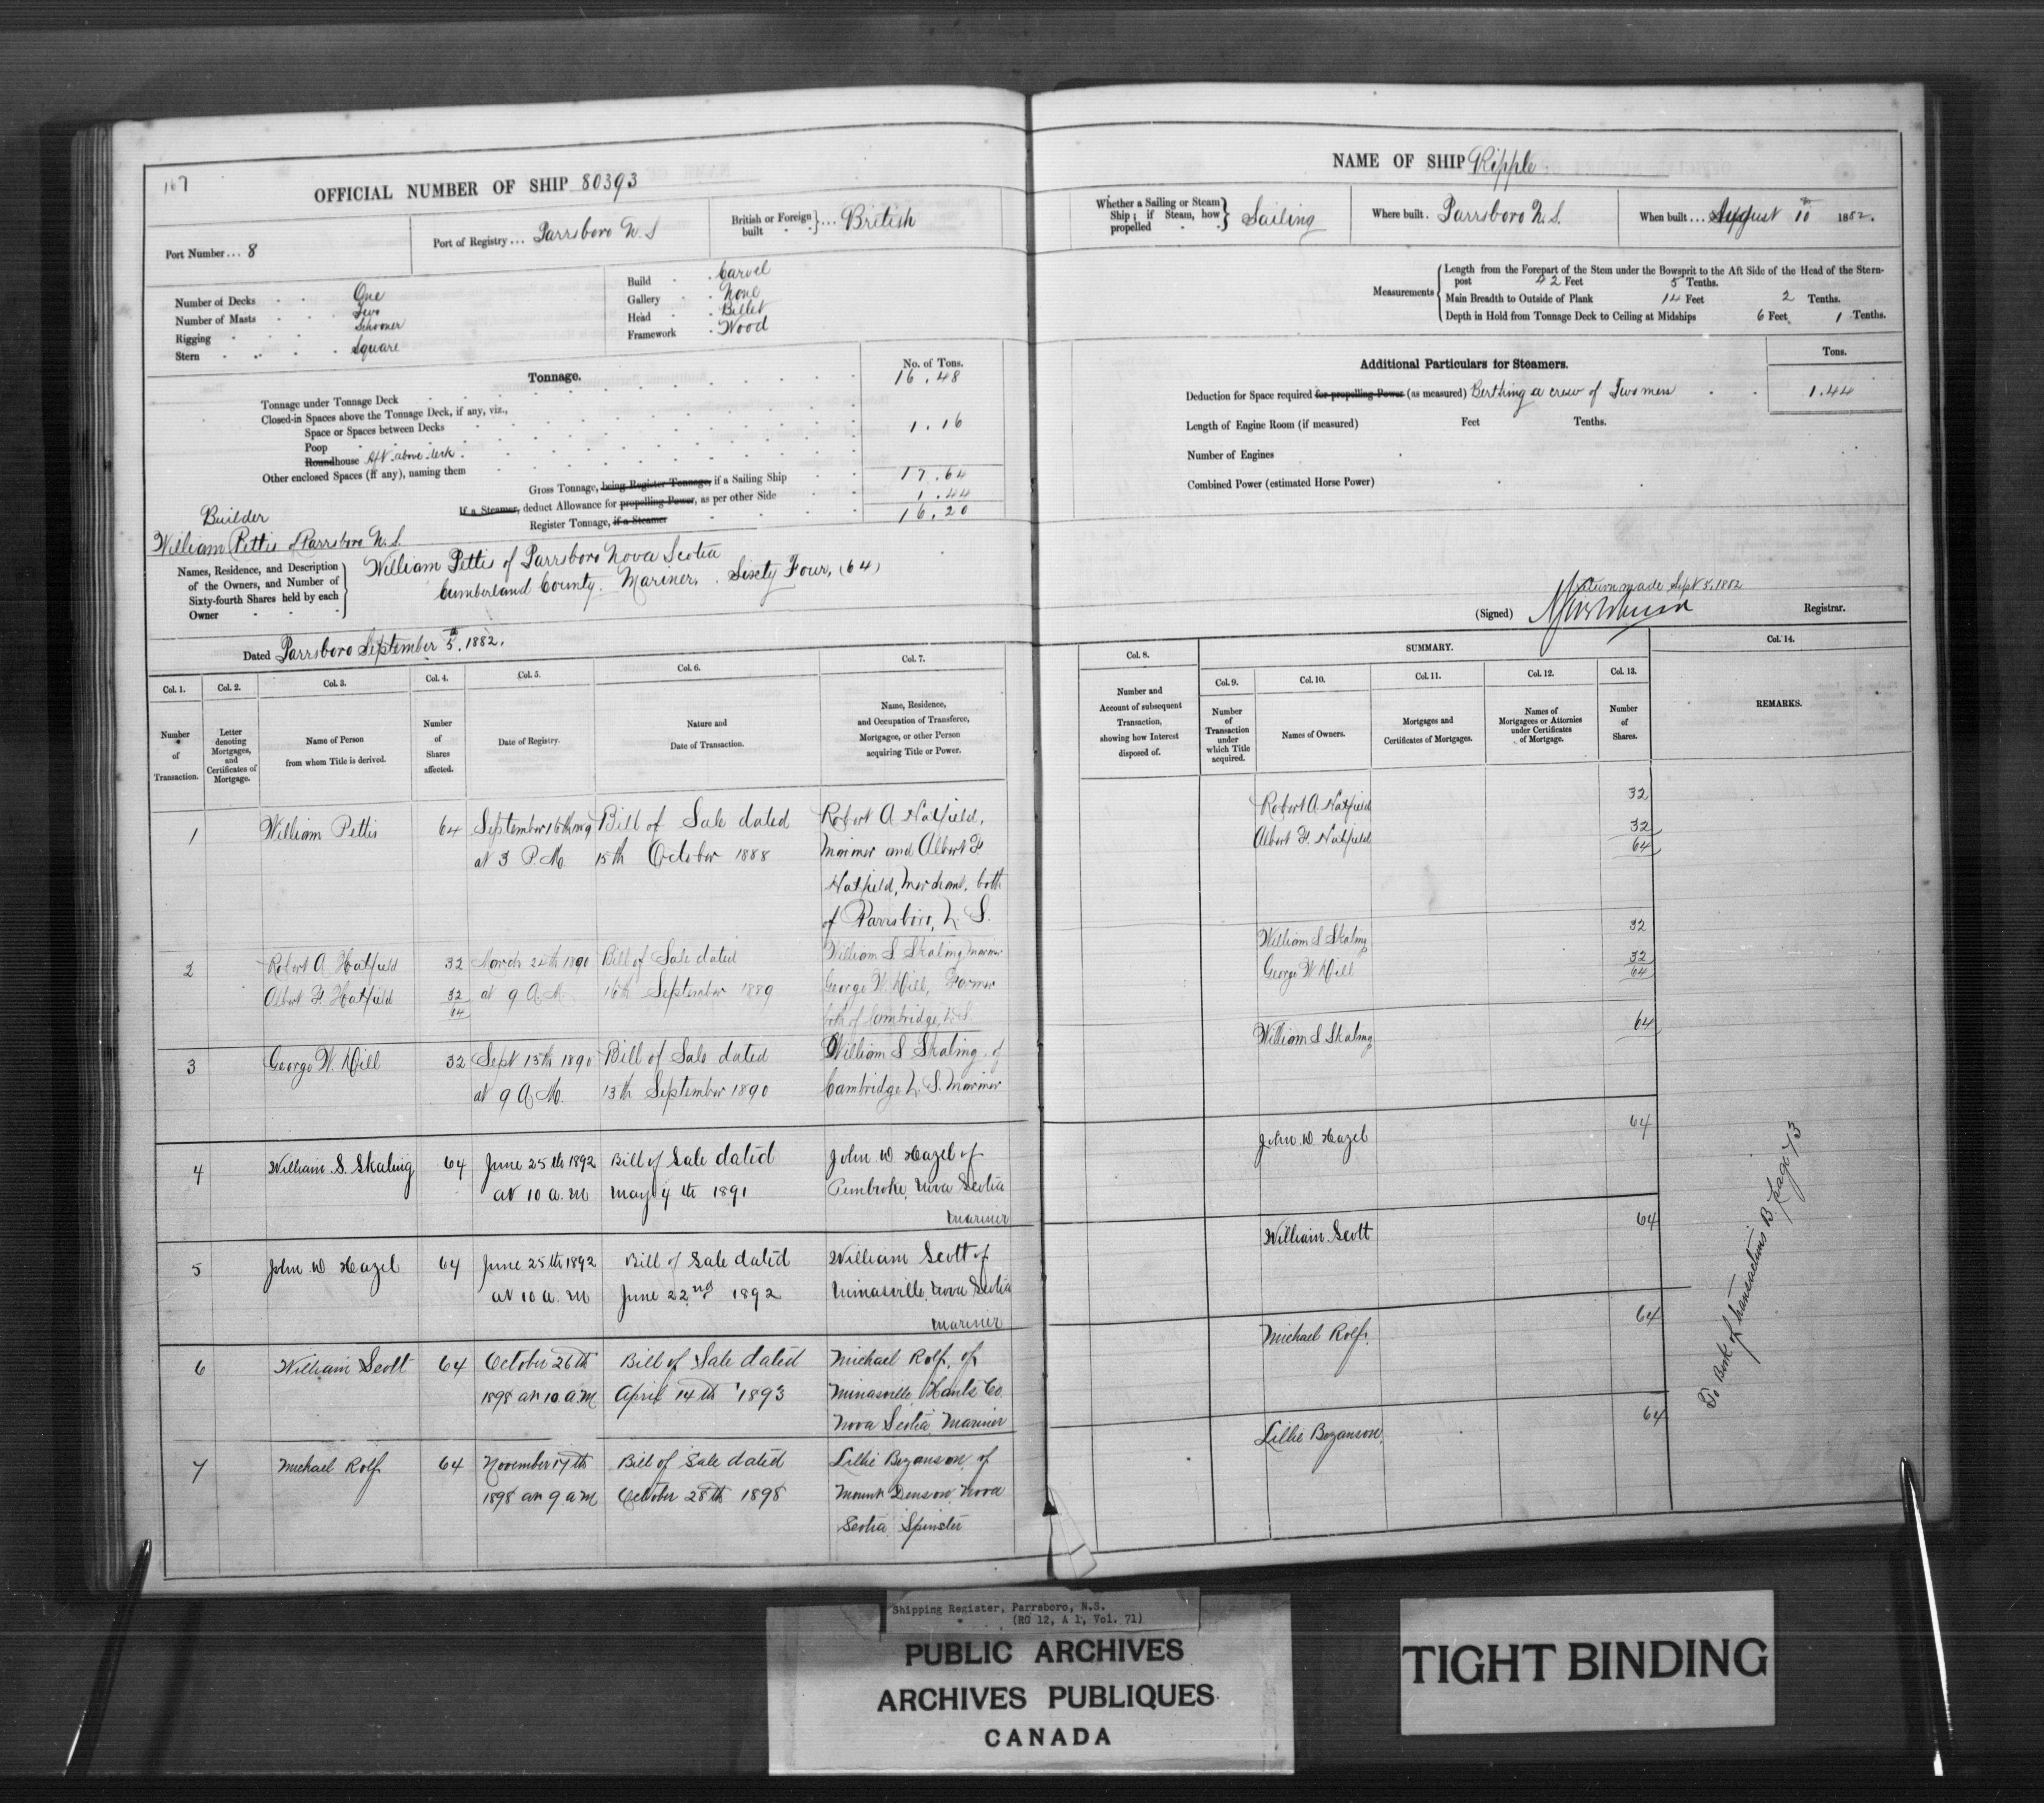 167
OFFICIAL NUMBER OF SHIP 80393
Port Number... 8
Port of Registry... Parrsboro N.S
British or Foreign built }... British
Number of Decks One
Number of Masts Two
Rigging Schooner
Stern Square
Build Carvel
Gallery None
Head Billet
Framework Wood
Tonnage.
No. of Tons.
Tonnage under Tonnage Deck 16.48
Closed-in Spaces above the Tonnage Deck, if any, viz.,
Space or Spaces between Decks
Poop 1.16
Roundhouse Aft above deck
Other enclosed Spaces (if any), naming them
Gross Tonnage, being Register Tonnage, if a Sailing Ship 17.64
If a Steamer, deduct Allowance for propelling Power, as per other Side 1.44
Register Tonnage, if a Steamer 16.20
Builder
William Pettis of Parrsboro N.S.
Names, Residence, and Description
of the Owners, and Number of
Sixty-fourth Shares held by each
Owner
William Pettis of Parrsboro Nova Scotia
Cumberland County. Mariner. Sixty Four, (64)
Dated Parrsboro September 5th, 1882.
Col. 1. Col. 2. Col. 3. Col. 4. Col. 5. Col. 6. Col. 7.
Number of Transaction.
Letter denoting Mortgages, and Certificates of Mortgage.
Name of Person from whom Title is derived.
Number of Shares affected.
Date of Registry.
Nature and Date of Transaction.
Name, Residence, and Occupation of Transferee, Mortgagee, or other Person acquiring Title or Power.
1 William Pettis 64 September 16th Bill of Sale dated Robert A Hatfield,
at 3 P.M. 15th October 1888 Mariner and Albert F
Hatfield, Merchant, both
of Parrsboro, N.S.
2 Robert A Hatfield 32 March 24th 1890 Bill of Sale dated William S Skaling Mariner
Albert F Hatfield 32 at 9 A.M. 16th September 1889 George W. Hill, Farmer
64 both of Cambridge, N.S
3 George W. Hill 32 Sept 15th 1890 Bill of Sale dated William S Skaling of
at 9 A.M. 13th September 1890 Cambridge N.S. Mariner
4 William S. Skaling 64 June 25th 1892 Bill of Sale dated John W Hazel of
at 10 a.m May 4th 1891 Pembroke, Nova Scotia
Mariner
5 John W Hazel 64 June 25th 1892 Bill of Sale dated William Scott of
at 10 a.m June 22nd 1892 Minasville, Nova Scotia
Mariner
6 William Scott 64 October 26th Bill of Sale dated Michael Rolf, of
1898 at 10 a.m April 14th 1893 Minasville Hants Co.
Nova Scotia Mariner
7 Michael Rolf 64 November 17th Bill of Sale dated Lillie Bezanson of
1898 at 9 a.m October 28th 1898 Mount Denson Nova
Scotia Spinster
NAME OF SHIP Ripple
Whether a Sailing or Steam Ship; if Steam, how propelled } Sailing
Where built. Parrsboro N.S.
When built... August 10th 1882.
Measurements
Length from the Forepart of the Stem under the Bowsprit to the Aft Side of the Head of the Stern-
post 42 Feet 5 Tenths.
Main Breadth to Outside of Plank 14 Feet 2 Tenths.
Depth in Hold from Tonnage Deck to Ceiling at Midships 6 Feet 1 Tenths.
Additional Particulars for Steamers.
Tons.
Deduction for Space required for propelling Power (as measured) Berthing a crew of Two men 1.44
Length of Engine Room (if measured) Feet Tenths.
Number of Engines
Combined Power (estimated Horse Power)
Return made Sept 5, 1882
(Signed) Registrar.
Col. 8. SUMMARY. Col. 14.
Col. 9. Col. 10. Col. 11. Col. 12. Col. 13.
Number and Account of subsequent Transaction, showing how Interest disposed of.
Number of Transaction under which Title acquired.
Names of Owners.
Mortgages and Certificates of Mortgages.
Names of Mortgagees or Attornies under Certificates of Mortgage.
Number of Shares.
REMARKS.
Robert A. Hatfield 32
Albert F. Hatfield 32
64
William S Skaling 32
George W Hill 32
64
William S Skaling 64
John W. Hazel 64
William Scott 64
Michael Rolf. 64
Lillie Bezanson. 64
To Book of transactions B. page 73
Shipping Register, Parrsboro, N.S.
(RG 12, A 1, Vol. 71)
PUBLIC ARCHIVES
ARCHIVES PUBLIQUES
CANADA
TIGHT BINDING